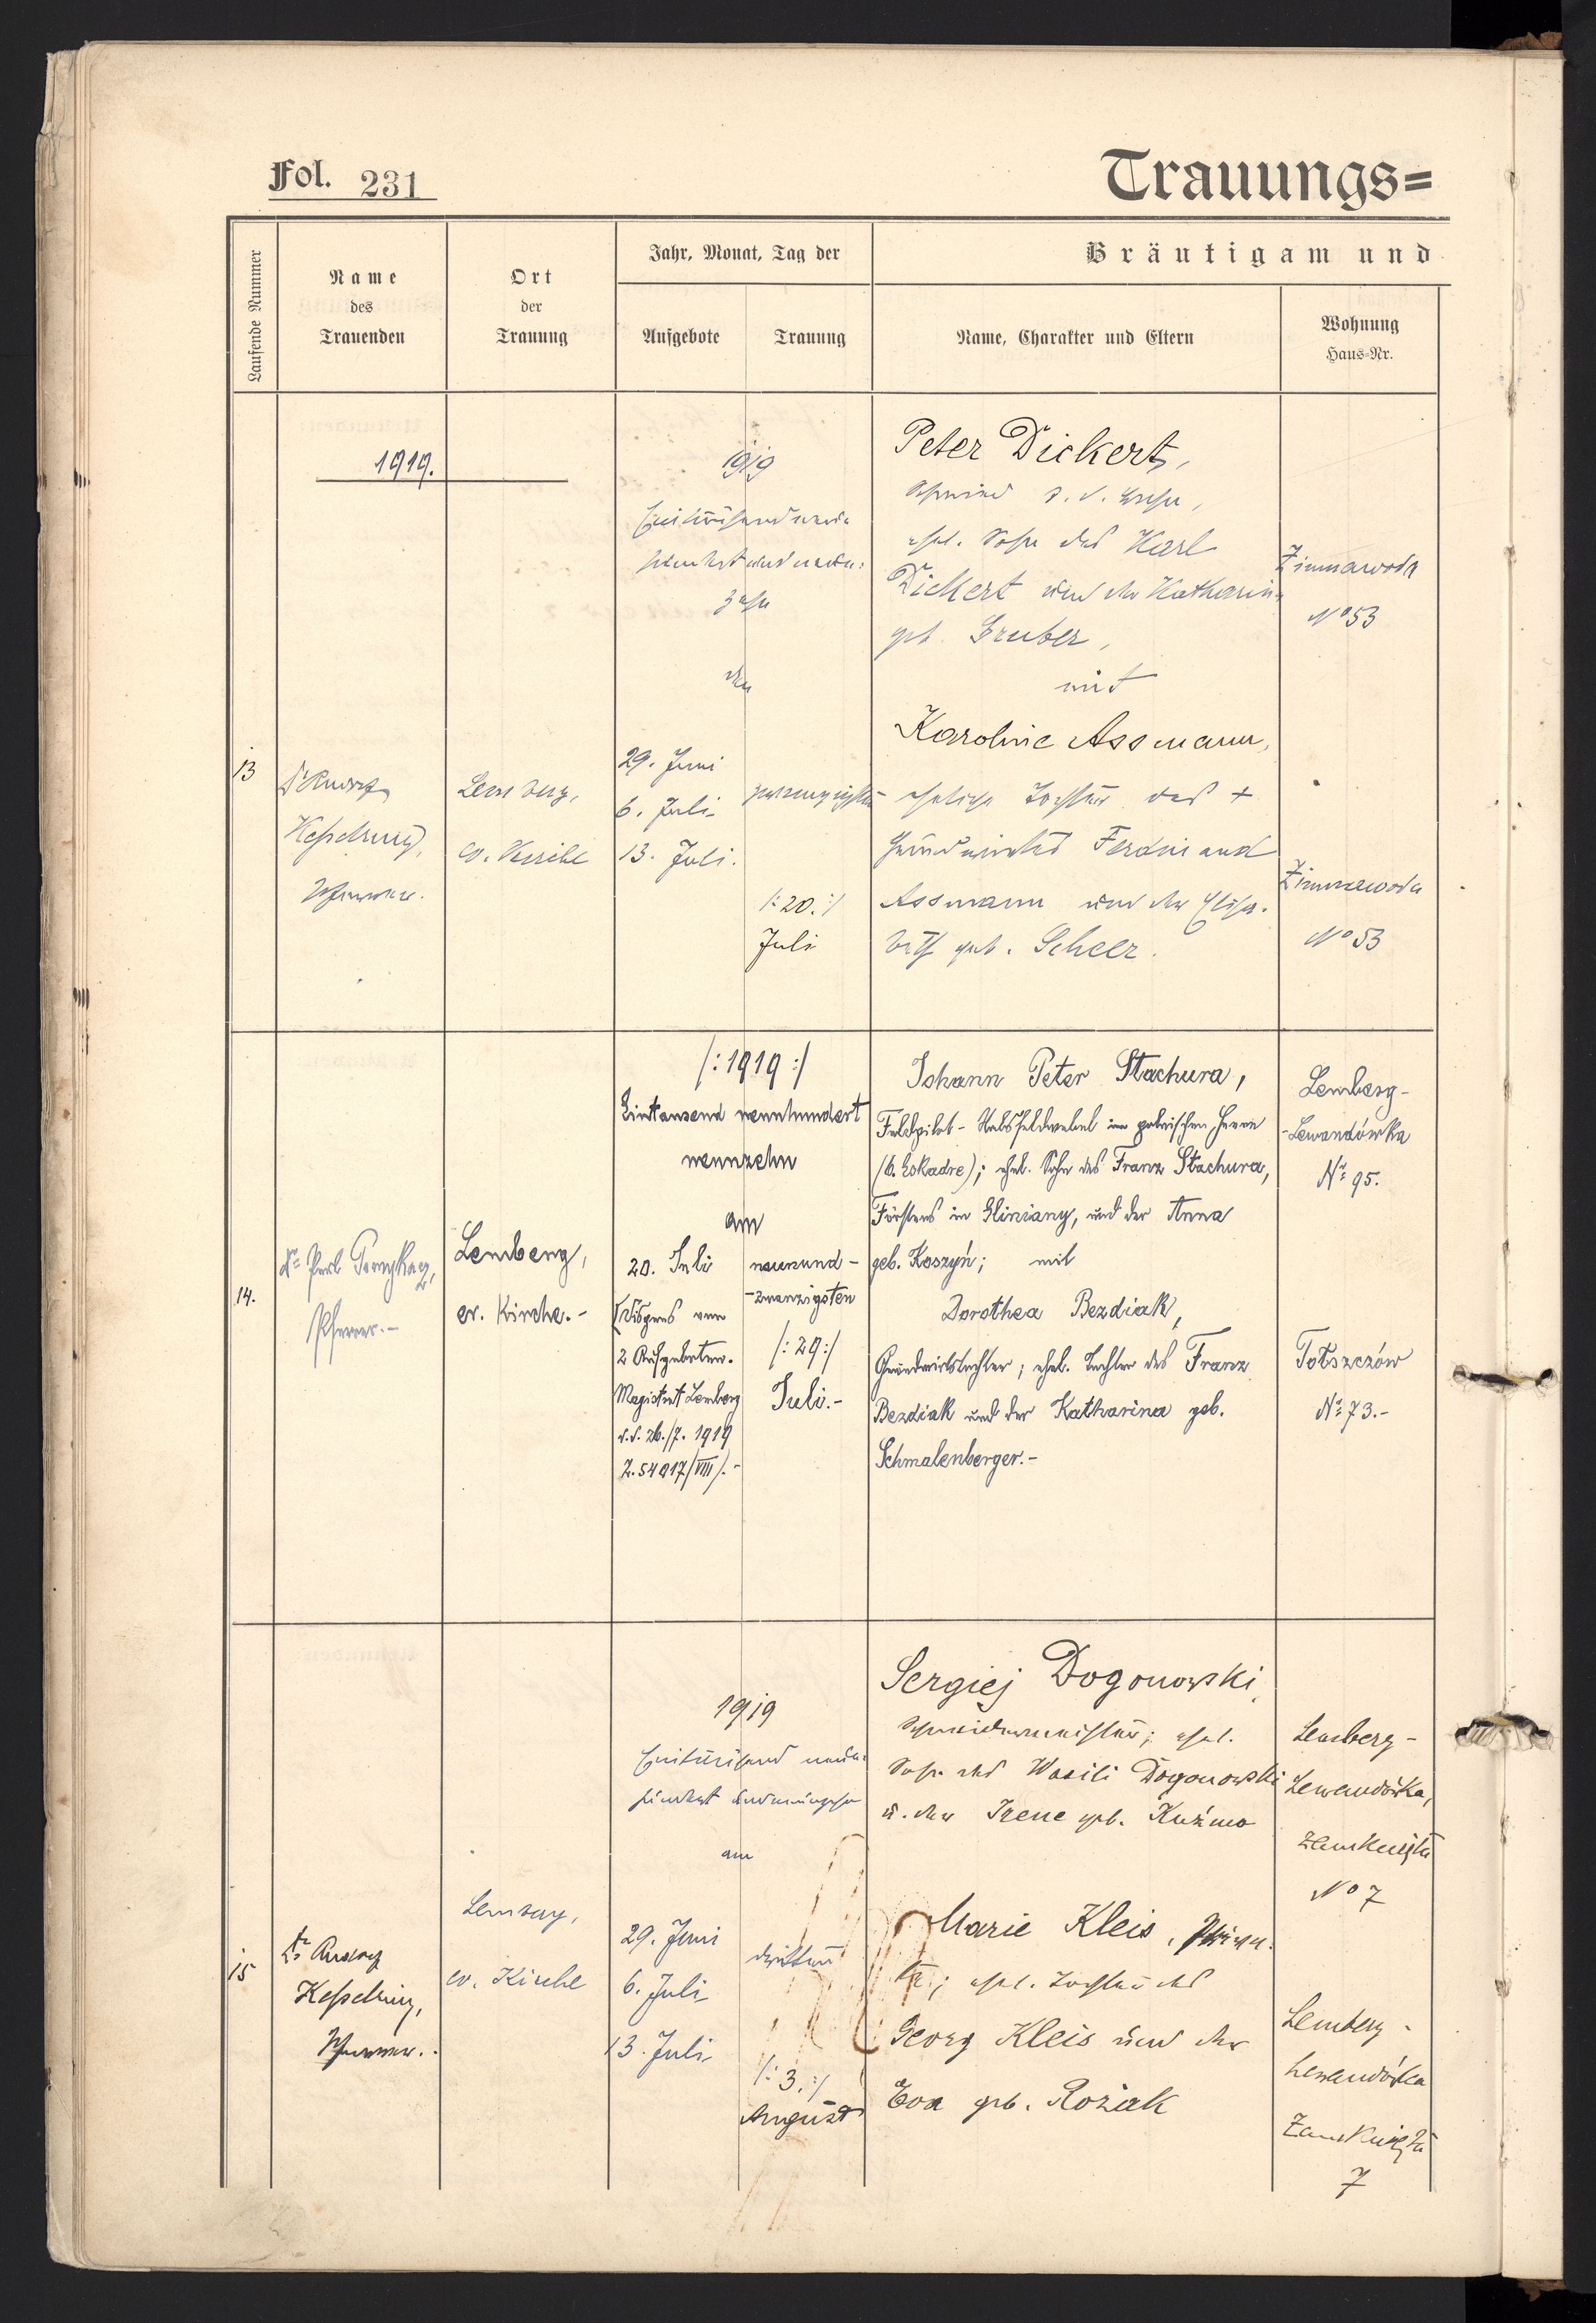 Fol. 231
Trauungs=
Laufende Nummer
Name
des
Trauenden
Ort
der
Trauung
Jahr, Monat, Tag der
Aufgebote
Trauung
Bräutigam und
Name, Charakter und Eltern
Wohnung
Haus-Nr.
1919.
13
Kesselring,
Pfarrer.
Lemberg,
ev. Kirche
1919
den
29. Juni
6. Juli
13. Juli.
zwanzigsten
/:20.:/
Juli
Peter Dickert,
Schmied
ehel. Sohn des Karl
Dickert und der Katharina
geb. Gruber,
mit
Karoline Assmann,
eheliche Tochter des +
Grundwirtes Ferdinand
Assmann und der Elisa-
beth geb. Scheer.
Zimnawoda
No 53
Zimnawoda
No 53
14.
Pfarrer.-
Lemberg,
ev. Kirche.-
/:1919:/
Eintausend neunhundert
neunzehn
am
20. Juli
(Dispens von
2 Aufgeboten.
Magistrat Lemberg
v. 26./7. 1919
Z. 54017/VIII/.-
neunund-
-zwanzigsten
/:29:/
Juli.-
Johann Peter Stachura,
Feldpilot-Stabsfeldwebel im polnischen Heere
(6. Eskadre); ehel. Sohn des Franz Stachura,
Försters in Gliniany, und der Anna
geb. Koszyń; mit
Dorothea Bezdiak,
Grundwirtstochter; ehel. Tochter des Franz
Bezdiak und der Katharina geb.
Schmalenberger.-
Lemberg-
-Lewandówka
No 95.
Totszczów
No 73.-
15
Dr Rudolf
Kesselring,
Pfarrer.
Lemberg,
ev. Kirche
1919
am
29. Juni
6. Juli
13. Juli
dritten
/:3.:/
August
Sergiej Dogonowski,
Schneidermeister; ehel.
Sohn des Wasili Dogonowski
u. der Irene geb. Kuźmo
Marie Kleis,
ehel. Tochter des
Georg Kleis und der
Eva geb. Roziak
Lemberg-
Lewandówka,
Zamknięta
No 7
Lemberg-
Lewandówka
Zamknięta
7